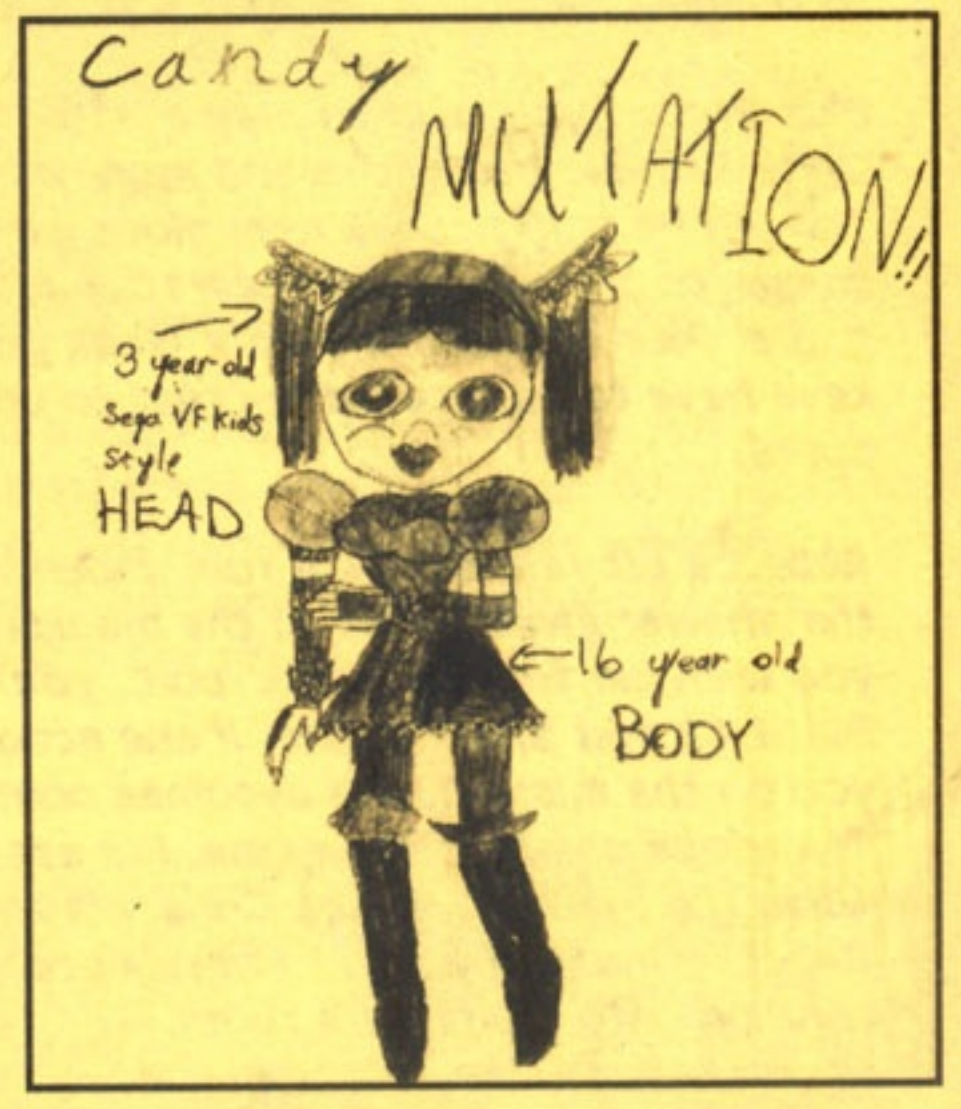 Candy
MUTATION!!
3 year old
Sega VF Kids
style
HEAD
16 year old
BODY